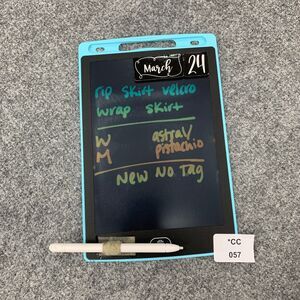 March 24
rip skirt velcro
wrap skirt
W astral/
M pistachio
New No Tag
*CC
057